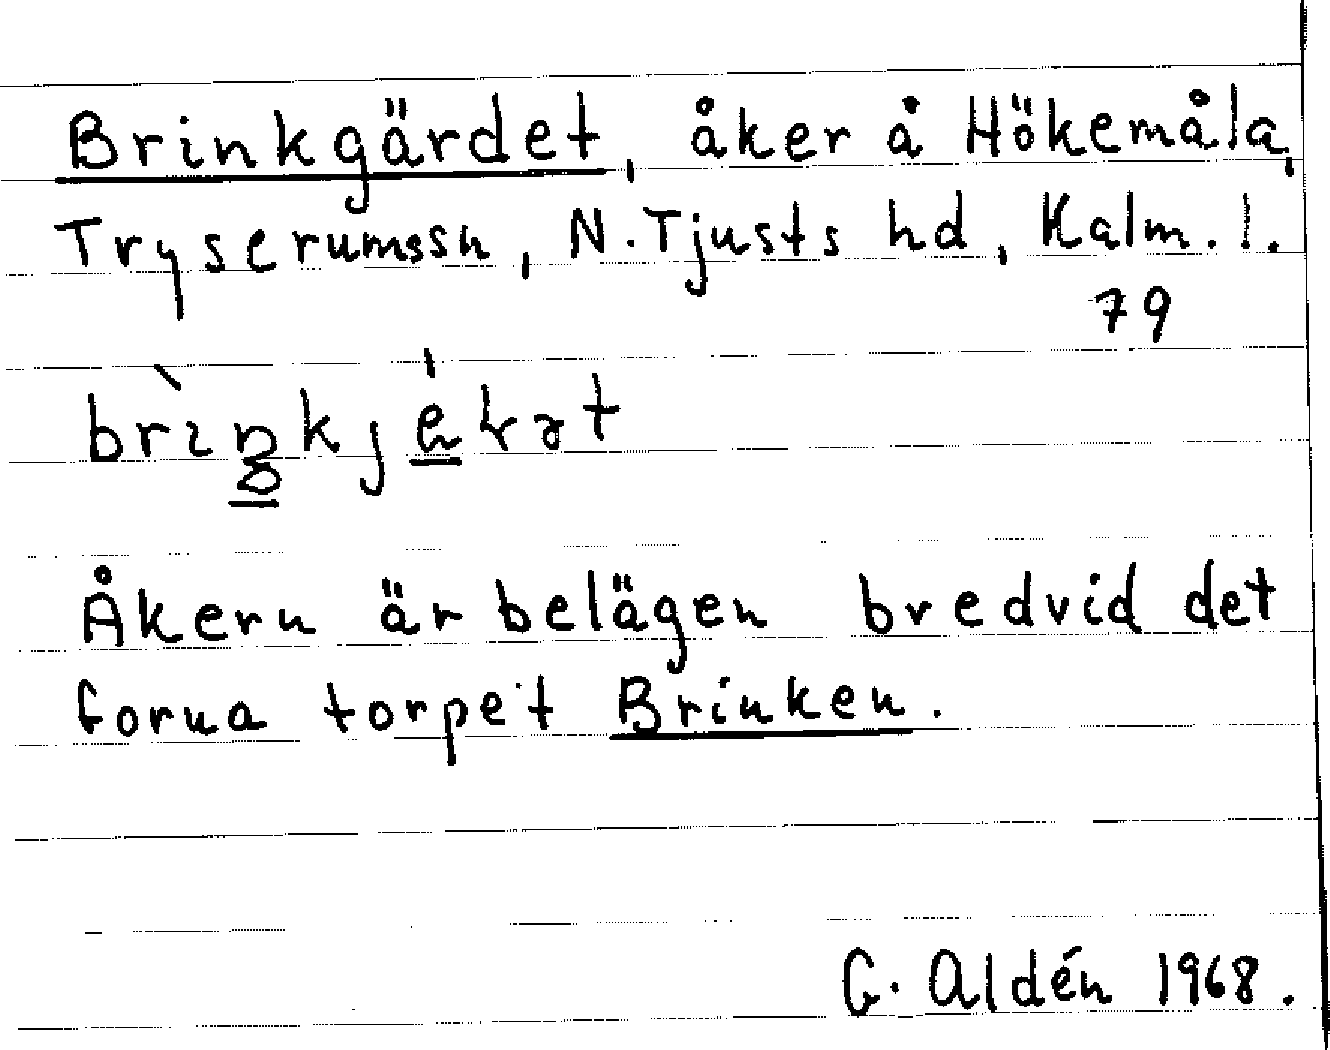 Brinkgärdet, åker å Hökemåla,
Tryserumssn, N. Tjusts hd, Kalm. l.
79
Åkern är belägen bredvid det
forna torpet Brinken.
G. Aldén 1968.